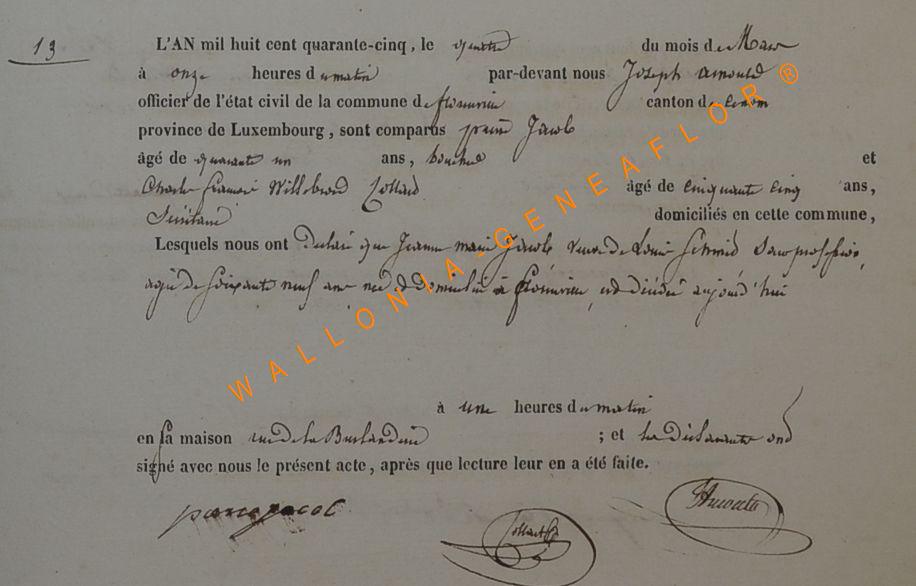 13
L'AN mil huit cent quarante-cinq, le quatre du mois de Mars
à onze heures du matin par-devant nous Joseph Arnould
officier de l'état civil de la commune de florenville canton de
province de Luxembourg, sont comparus pierre Jacob
âgé de quarante un ans, et
Charles Willebrord Collard âgé de cinquante cinq ans,
domiciliés en cette commune,
Lesquels nous ont déclaré que Jeanne marie Jacob veuve de Louis Schmid sans profession,
agée de soixante neuf ans née et domiciliée à florenville est décédée aujourd'hui
à une heures du matin
en sa maison rue de la ; et les déclarants ont
signé avec nous le présent acte, après que lecture leur en a été faite.
jacob
WALLONIA-GENEAFLOR®